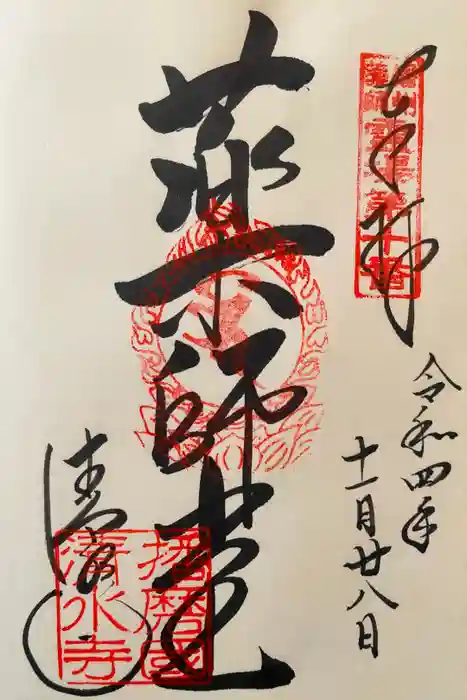 奉拝
播州
薬師霊場第十番
令和四年
十一月廿八日
薬師堂
清水寺
播磨國
清水寺